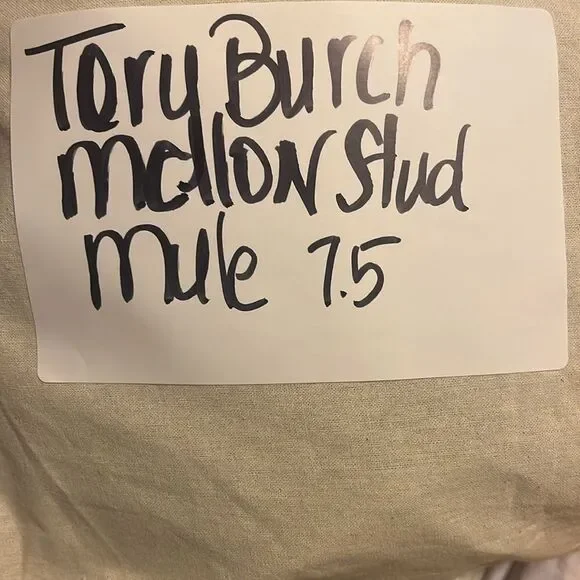 Tory Burch
mellow Stud
mule 7.5